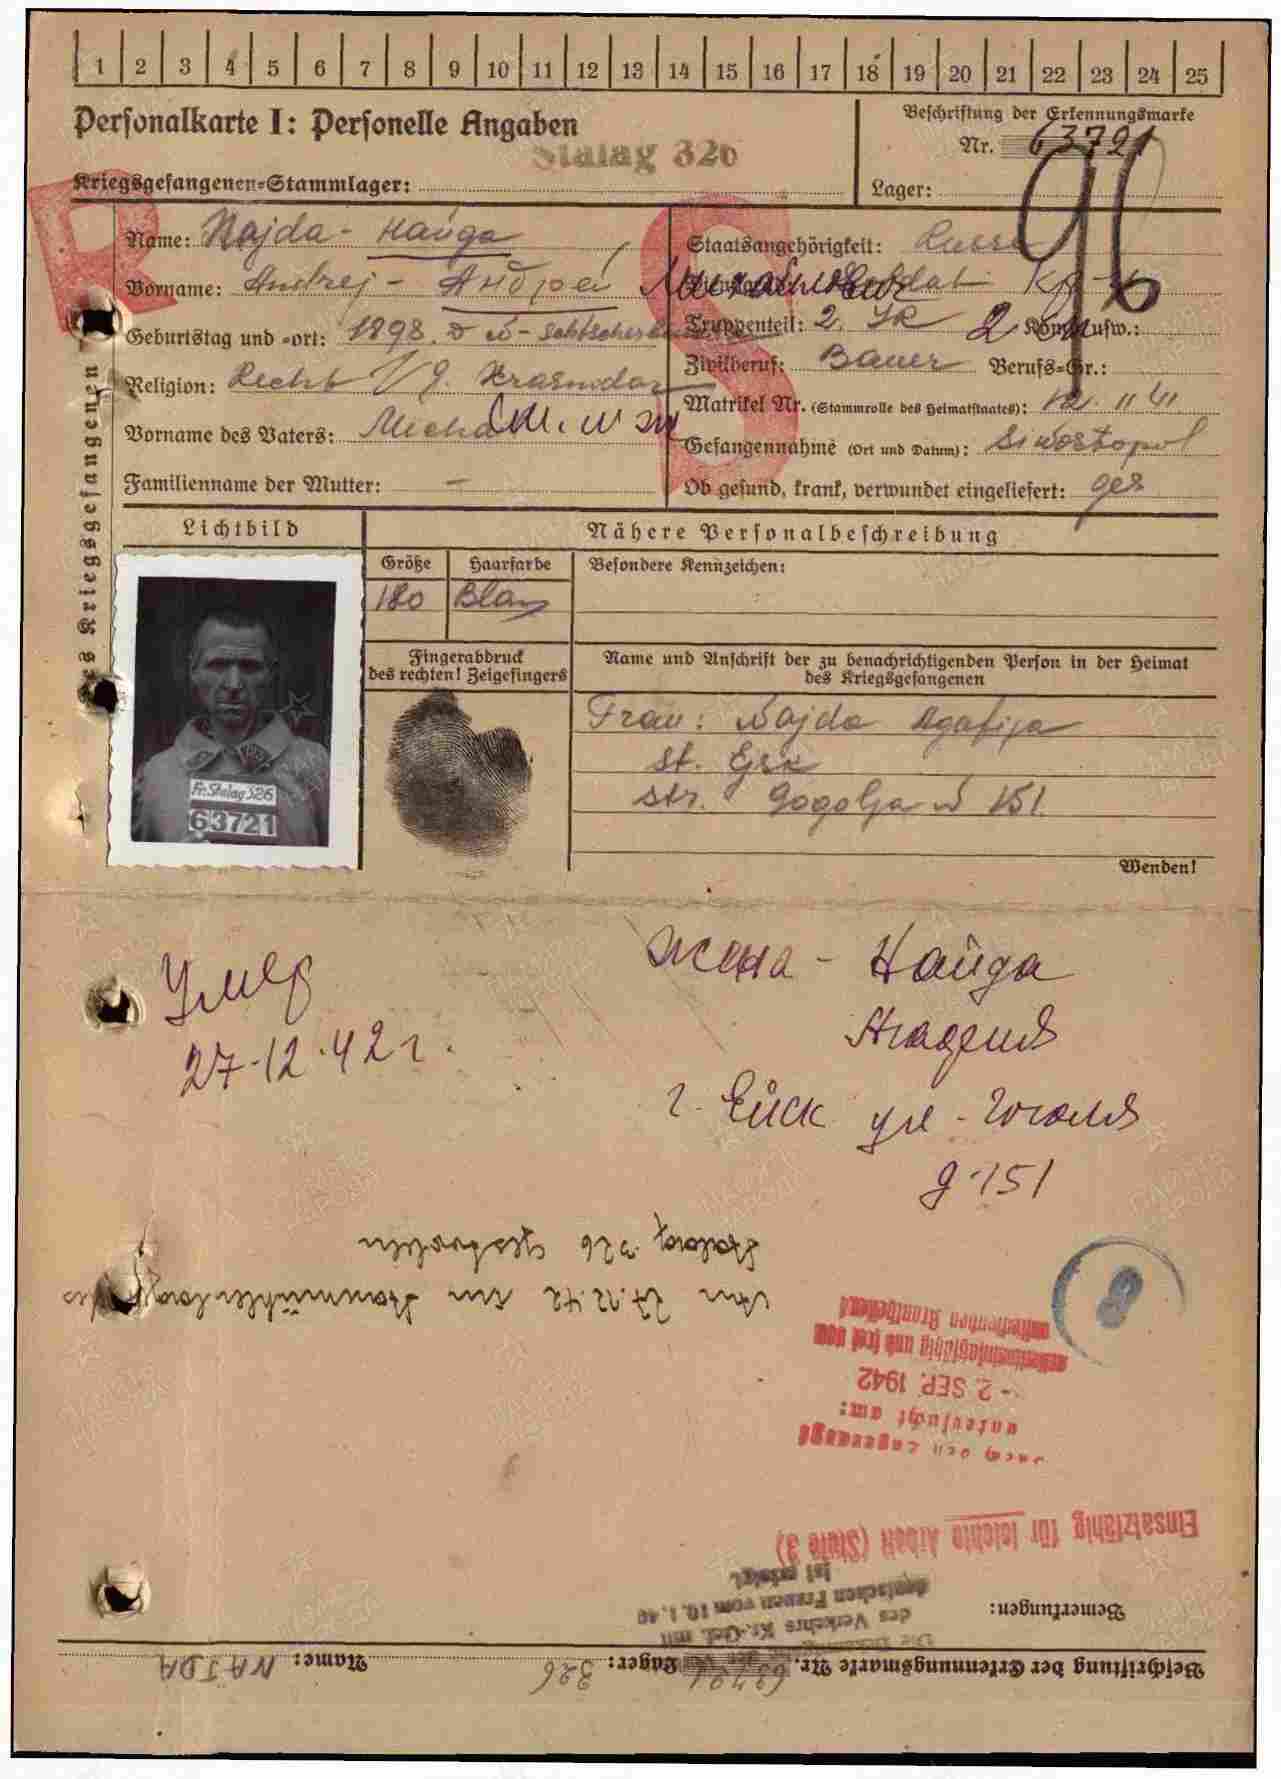 1 2 3 4 5 6 7 8 9 10 11 12 13 14 15 16 17 18 19 20 21 22 23 24 25
Personalkarte I: Personelle Angaben
Stalag 326
Kriegsgefangenen-Stammlager:
Beschriftung der Erkennungsmarke
Nr. 63721
Lager:
96
R
S
des Kriegsgefangenen
Name: Najda - Найда
Vorname: Andrej - Андрей
Geburtstag und -ort: 1898.
Religion: Krasnodar
Vorname des Vaters:
Familienname der Mutter: -
Staatsangehörigkeit: Russe
Soldat
Truppenteil: 2.
Komp. usw.:
Zivilberuf: Bauer Berufs-Gr.:
Matrikel Nr. (Stammrolle des Heimatstaates):
Gefangennahme (Ort und Datum): Siwostopol
Ob gesund, krank, verwundet eingeliefert: ges
Lichtbild
Nähere Personalbeschreibung
Größe
180
Haarfarbe
Besondere Kennzeichen:
Fr. Stalag 326
63721
Fingerabdruck
des rechten! Zeigefingers
Name und Anschrift der zu benachrichtigenden Person in der Heimat
des Kriegsgefangenen
Frau: Najda Agafija
st. Ejsk
str. Gogolja N 151.
Wenden!
Умер
27-12.42г.
жена - Найда
Агафия
г. Ейск ул - Гоголя
д-151
Beschriftung der Erkennungsmarke Nr. 63721 Lager: 326 Name: NAJDA
Bemerkungen:
des Verkehrs Kr.-Gef. mit
deutschen Frauen vom 10.1.40
ist erfolgt.
Einsatzfähig für leichte Arbeit (Stufe 3)
untersucht am:
- 2. SEP. 1942
und frei von
ansteckenden Krankheiten!
8
Am 27.12.42 im Stammlager
Stalag 326 gestorben